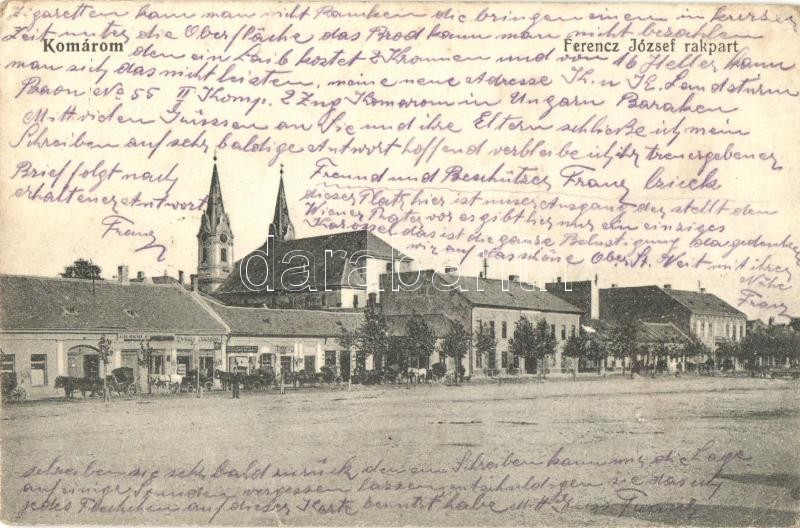 Zigaretten kann man nicht Rauchen die bringen einen in kurzer
Zeit unter die Oberfläche das Brod kann man nicht bezahlen
Komárom
Ferencz József rakpart
den ein Laib kostet 2 Kronnen und von 16 Heller kann
man sich das nicht leisten, meine neue Adresse K. u. K. Landsturm
Baon No 55 II Komp. 2 Zug Komarom in Ungarn Baraken
Mitt vielen Grüssen an Sie und ihre Eltern schließe ich mein
Schreiben auf sehr baldige Antwort hoffend verbleibe ich ihr treuergebener
Brief folgt nach
Freund und Beschützer Franz
erhaltener Antwort
dieser Platz hier ist unser Ausgang der stellt den
Franz
Wiener Prater vor es gibt hier nur ein einziges
Karossel das ist die ganze Belustigung dagedenken
wir auf das schöne Ober St. Veit mit ihrer
Nähe
Franz
darabanth
schreiben sie sehr bald zurück den ein Schreiben kann mir die Lage
auf einige Stunden vergessen lassen entschuldigen sie das ich
jedes Fleckchen auf dieser Karte benutzt habe Mitt Gruss Franz